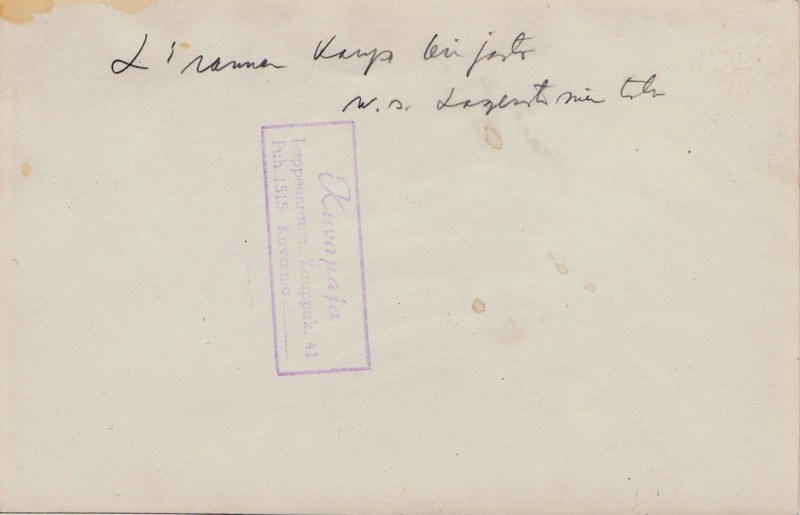 L:rannan Kaup. kirjasto
w.s. Lagerstamin talo
Kuvapaja
Lappeenranta, Kauppak. 41
Puh. 1515 Kuva n:o ............